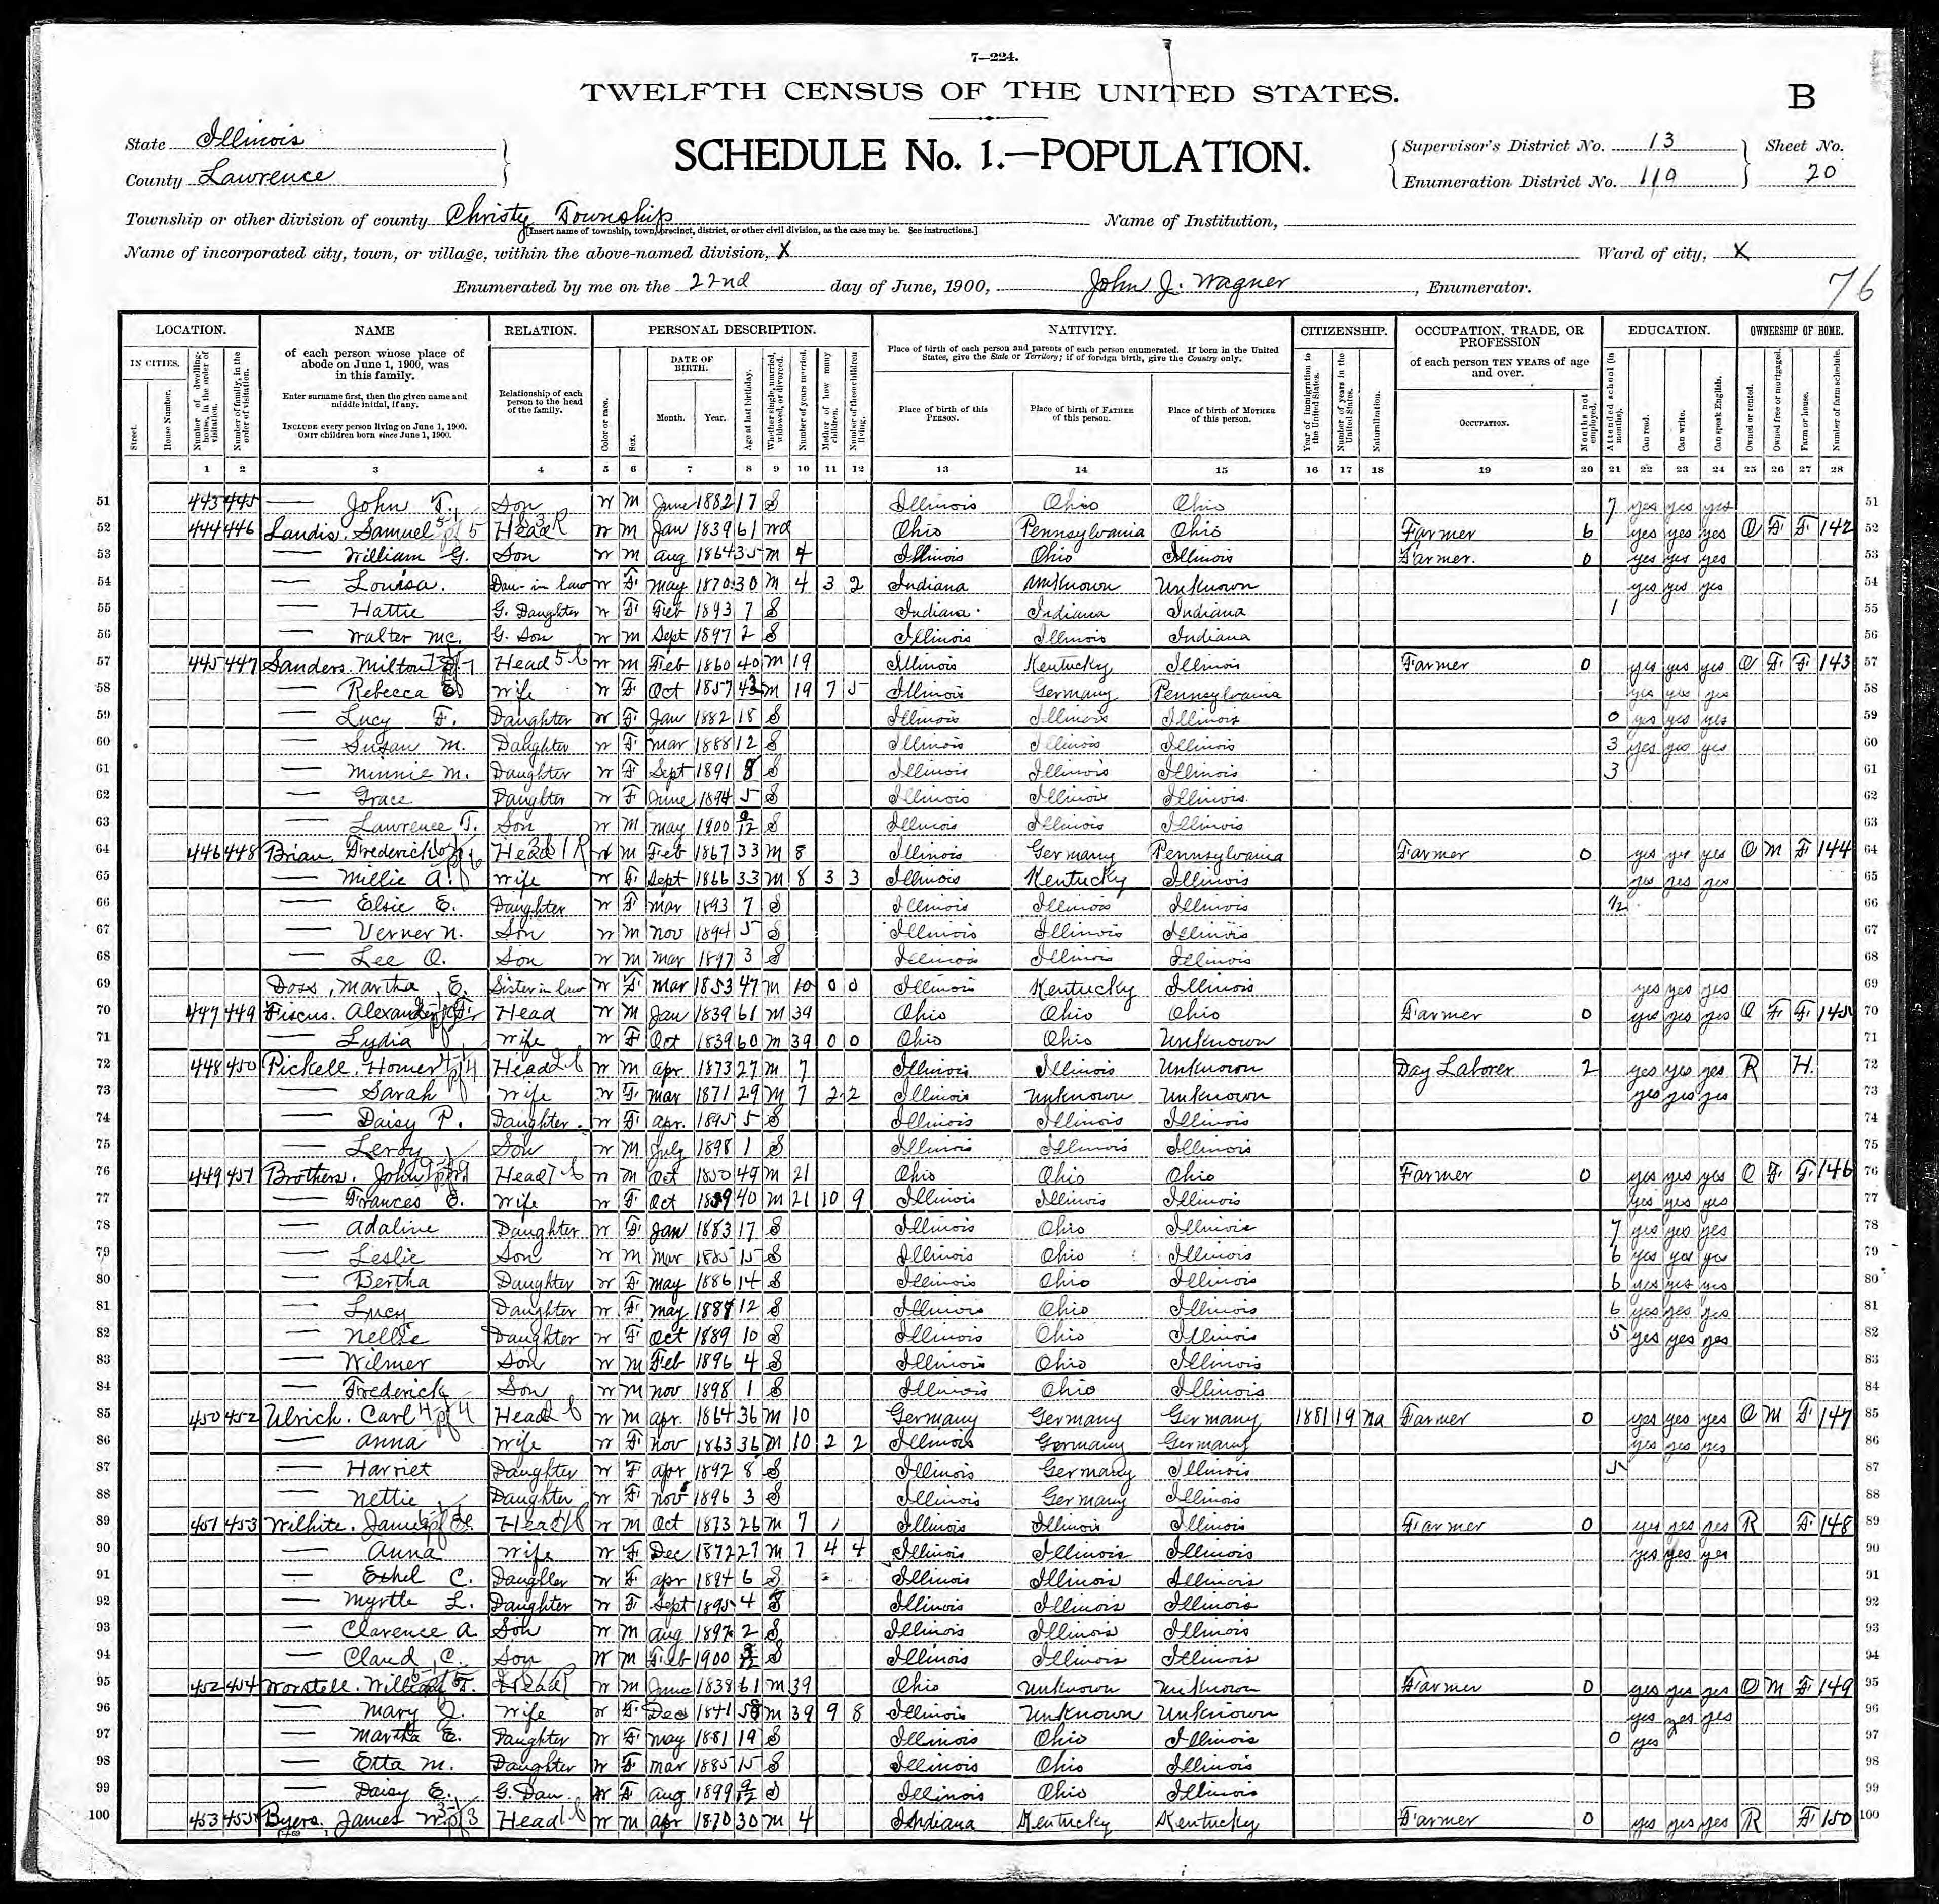 7—224.
TWELFTH CENSUS OF THE UNITED STATES.
B
State Illinois
County Lawrence
SCHEDULE No. 1.—POPULATION.
Supervisor's District No. 13
Enumeration District No. 110
Sheet No.
20
Township or other division of county Christy Township
[Insert name of township, town, precinct, district, or other civil division, as the case may be. See instructions.]
Name of Institution,
Name of incorporated city, town, or village, within the above-named division, X
Ward of city, X
Enumerated by me on the 22nd day of June, 1900, John J. Wagner, Enumerator.
76
LOCATION. NAME RELATION. PERSONAL DESCRIPTION. NATIVITY. CITIZENSHIP. OCCUPATION, TRADE, OR PROFESSION EDUCATION. OWNERSHIP OF HOME.
IN CITIES.
Street.
House Number.
Number of dwelling-house, in the order of visitation.
Number of family, in the order of visitation.
of each person whose place of abode on June 1, 1900, was in this family.
Enter surname first, then the given name and middle initial, if any.
INCLUDE every person living on June 1, 1900. OMIT children born since June 1, 1900.
Relationship of each person to the head of the family.
Color or race.
Sex.
DATE OF BIRTH.
Month. Year.
Age at last birthday.
Whether single, married, widowed, or divorced.
Number of years married.
Mother of how many children.
Number of these children living.
Place of birth of each person and parents of each person enumerated. If born in the United States, give the State or Territory; if of foreign birth, give the Country only.
Place of birth of this PERSON.
Place of birth of FATHER of this person.
Place of birth of MOTHER of this person.
Year of immigration to the United States.
Number of years in the United States.
Naturalization.
of each person TEN YEARS of age and over.
OCCUPATION.
Months not employed.
Attended school (in months).
Can read.
Can write.
Can speak English.
Owned or rented.
Owned free or mortgaged.
Farm or house.
Number of farm schedule.
1 2 3 4 5 6 7 8 9 10 11 12 13 14 15 16 17 18 19 20 21 22 23 24 25 26 27 28
51 443 445 — John T. Son W M June 1882 17 S Illinois Ohio Ohio 7 yes yes yes 51
52 444 446 Landis, Samuel Head W M Jan 1839 61 Wd Ohio Pennsylvania Ohio Farmer 6 yes yes yes O F F 142 52
53 — William G. Son W M Aug 1864 35 M 4 Illinois Ohio Illinois Farmer. 0 yes yes yes 53
54 — Louisa. Dau-in law W F May 1870 30 M 4 3 2 Indiana Unknown Unknown yes yes yes 54
55 — Hattie G. Daughter W F Feb 1893 7 S Indiana Indiana Indiana 1 55
56 — Walter Mc. G. Son W M Sept 1897 2 S Illinois Illinois Indiana 56
57 445 447 Sanders, Milton Head W M Feb 1860 40 M 19 Illinois Kentucky Illinois Farmer 0 yes yes yes O F F 143 57
58 — Rebecca E. Wife W F Oct 1857 43 M 19 7 5 Illinois Germany Pennsylvania yes yes yes 58
59 — Lucy F. Daughter W F Jan 1882 18 S Illinois Illinois Illinois 0 yes yes yes 59
60 — Susan M. Daughter W F Mar 1888 12 S Illinois Illinois Illinois 3 yes yes yes 60
61 — Minnie M. Daughter W F Sept 1891 8 S Illinois Illinois Illinois 3 61
62 — Grace Daughter W F June 1894 5 S Illinois Illinois Illinois. 62
63 — Lawrence T. Son W M May 1900 0/12 S Illinois Illinois Illinois 63
64 446 448 Brian, Frederick Head W M Feb 1867 33 M 8 Illinois Germany Pennsylvania Farmer 0 yes yes yes O M F 144 64
65 — Millie A. Wife W F Sept 1866 33 M 8 3 3 Illinois Kentucky Illinois yes yes yes 65
66 — Elsie E. Daughter W F Mar 1893 7 S Illinois Illinois Illinois 1/2 66
67 — Verner N. Son W M Nov 1894 5 S Illinois Illinois Illinois 67
68 — Lee O. Son W M Mar 1897 3 S Illinois Illinois Illinois 68
69 Doss, Martha E. Sister in law W F Mar 1853 47 M 10 0 0 Illinois Kentucky Illinois yes yes yes 69
70 447 449 Fiscus. Alexander Head W M Jan 1839 61 M 39 Ohio Ohio Ohio Farmer 0 yes yes yes O F F 145 70
71 — Lydia Wife W F Oct 1839 60 M 39 0 0 Ohio Ohio Unknown 71
72 448 450 Pickell, Homer Head W M Apr 1873 27 M 7 Illinois Illinois Unknown Day Laborer 2 yes yes yes R H 72
73 — Sarah Wife W F Mar 1871 29 M 7 2 2 Illinois Unknown Unknown yes yes yes 73
74 — Daisy P. Daughter. W F Apr. 1895 5 S Illinois Illinois Illinois 74
75 — Leroy Son W M July 1898 1 S Illinois Illinois Illinois 75
76 449 451 Brothers, John Head W M Oct 1850 49 M 21 Ohio Ohio Ohio Farmer 0 yes yes yes O F F 146 76
77 — Frances E. Wife W F Oct 1859 40 M 21 10 9 Illinois Illinois Illinois yes yes yes 77
78 — Adaline Daughter W F Jan 1883 17 S Illinois Ohio Illinois 7 yes yes yes 78
79 — Leslie Son W M Mar 1885 15 S Illinois Ohio Illinois 6 yes yes yes 79
80 — Bertha Daughter W F May 1886 14 S Illinois Ohio Illinois 6 yes yes yes 80
81 — Lucy Daughter W F May 1888 12 S Illinois Ohio Illinois 6 yes yes yes 81
82 — Nellie Daughter W F Oct 1889 10 S Illinois Ohio Illinois 5 yes yes yes 82
83 — Wilmer Son W M Feb 1896 4 S Illinois Ohio Illinois 83
84 — Frederick Son W M Nov 1898 1 S Illinois Ohio Illinois 84
85 450 452 Ulrich. Carl Head W M Apr. 1864 36 M 10 Germany Germany Germany 1881 19 Na Farmer 0 yes yes yes O M F 147 85
86 — Anna Wife W F Nov 1863 36 M 10 2 2 Illinois Germany Germany yes yes yes 86
87 — Harriet Daughter W F Apr 1892 8 S Illinois Germany Illinois 5 87
88 — Nettie Daughter W F Nov 1896 3 S Illinois Germany Illinois 88
89 451 453 Wilhite, James Head W M Oct 1873 26 M 7 Illinois Illinois Illinois Farmer 0 yes yes yes R F 148 89
90 — Anna Wife W F Dec 1872 27 M 7 4 4 Illinois Illinois Illinois yes yes yes 90
91 — Ethel C. Daughter W F Apr 1894 6 S Illinois Illinois Illinois 91
92 — Myrtle L. Daughter W F Sept 1895 4 S Illinois Illinois Illinois 92
93 — Clarence A Son W M Aug 1897 2 S Illinois Illinois Illinois 93
94 — Claud C. Son W M Feb 1900 3/12 S Illinois Illinois Illinois 94
95 452 454 Worstell, William T. Head W M June 1838 61 M 39 Ohio Unknown Unknown Farmer 0 yes yes yes O M F 149 95
96 — Mary J. Wife W F Dec 1841 58 M 39 9 8 Illinois Unknown Unknown yes yes yes 96
97 — Martha E. Daughter W F May 1881 19 S Illinois Ohio Illinois 0 yes 97
98 — Etta M. Daughter W F Mar 1885 15 S Illinois Ohio Illinois 98
99 — Daisy E. G. Dau. W F Aug 1899 9/12 S Illinois Ohio Illinois 99
100 453 455 Byers. James W. Head W M Apr 1870 30 M 4 Indiana Kentucky Kentucky Farmer 0 yes yes yes R F 150 100